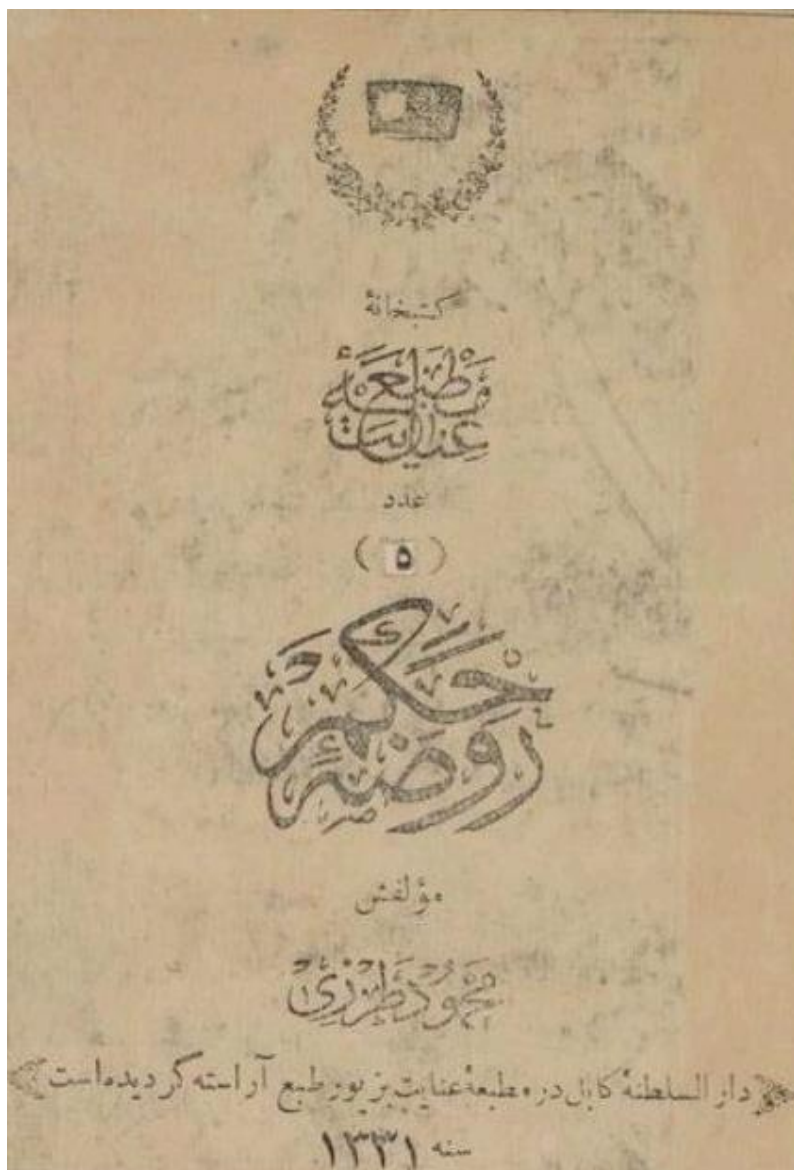 کتبخانهٔ
مطبعهٔ
عنایت
عدد
(۵)
روضهٔ حکم
مؤلفش
محمود طرزی
دار السلطنهٔ کابل در مطبعهٔ عنایت بزیور طبع آراسته گردیده است
سنه ۱۳۳۱